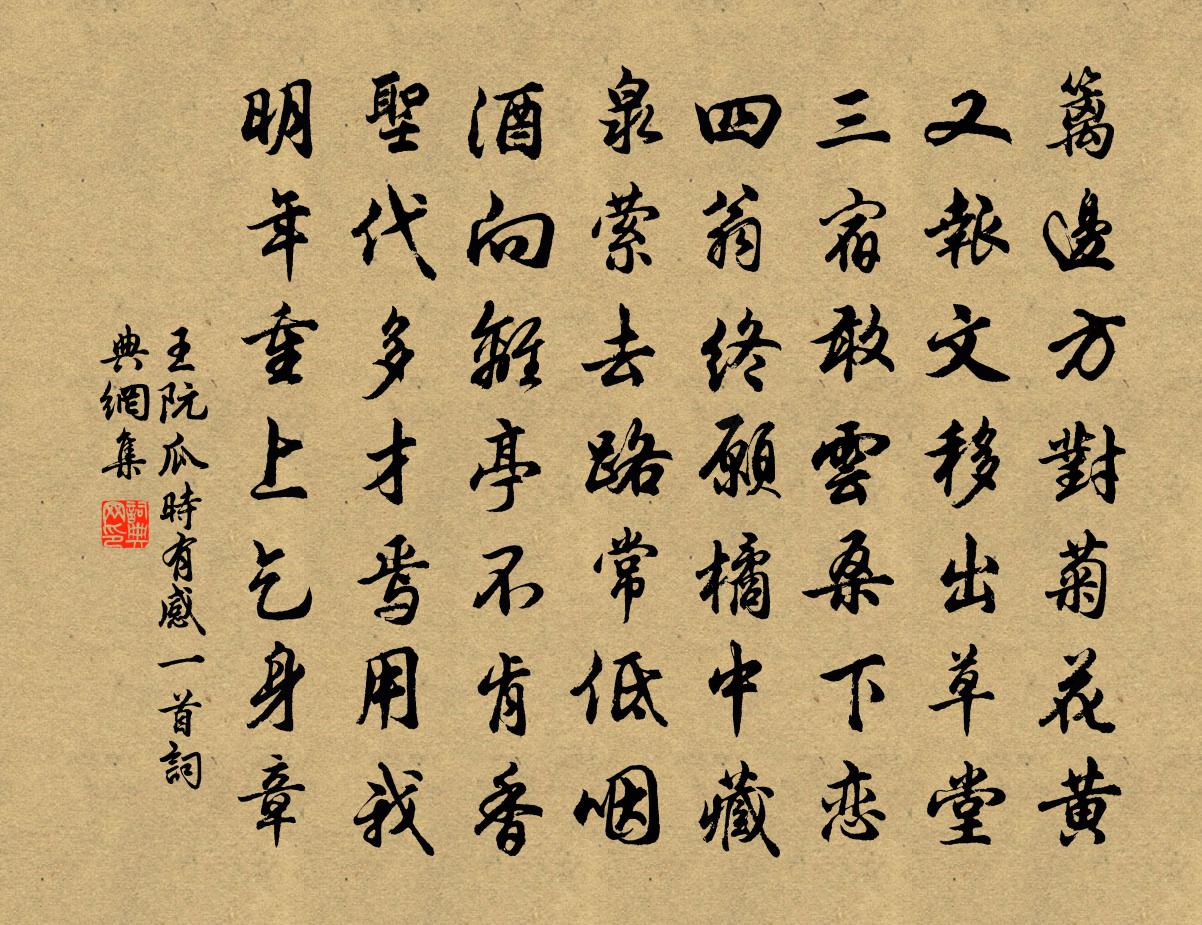 籬邊方對菊花黃
又報文移出草堂
三宿敢雲桑下恋
四翁終願橘中藏
泉縈去路常低咽
酒向離亭不肯香
聖代多才焉用我
明年重上乞身章
王阮瓜時有感一首詞
典網集
詞典网印